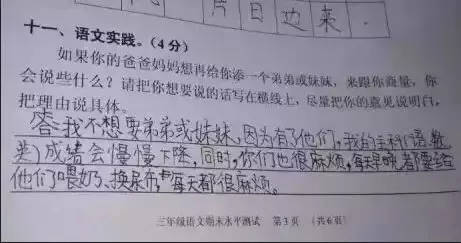 片日边来.
十一、语文实践。（4分）
如果你的爸爸妈妈想再给你添一个弟弟或妹妹，来跟你商量，你
会说些什么？请把你想要说的话写在横线上，尽量把你的意见说明白，
把理由说具体。
答：我不想要弟弟或妹妹，因为有了他们，我的主科(语、数
英)成绩会慢慢下降，同时，你们也很麻烦，每天早晚都要给
他们喂奶、换尿布，每天都很麻烦。
三年级语文期末水平测试 第3页 （共6页）